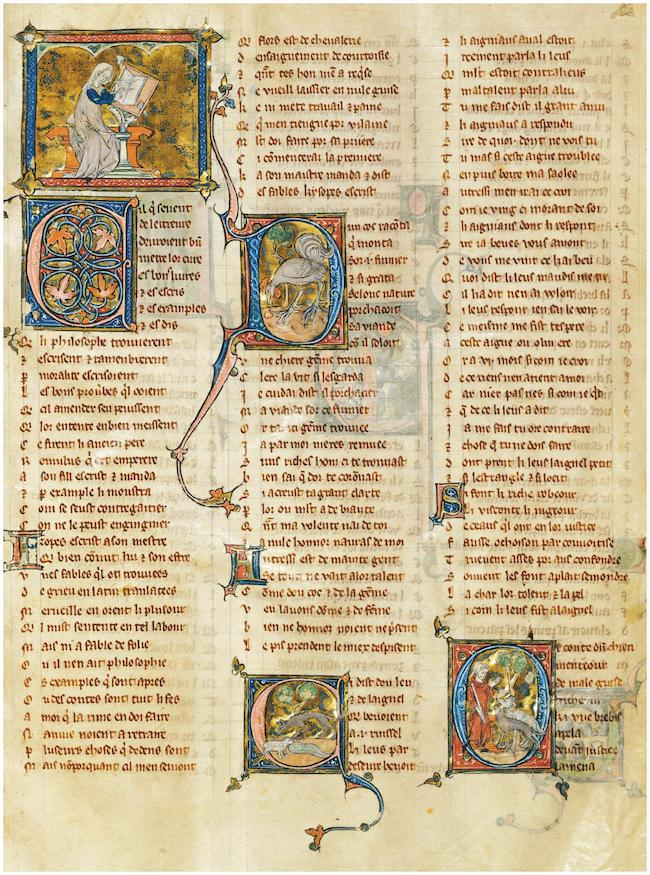 il q̃ seuent
de letreure
deuroient bñ
metre lor cure
es bõs liures
⁊ es escris
⁊ es examples
⁊ es dis
Q li philosophe trouuerent
⁊ escrisent ⁊ ramenbrerent
P moralite escrisoient
L es bons prouẽbes q̃l ooient
Q cil amender sen peussent
Q lor entente en bien meissent
C e firent li ancien pere
R omulus q̃ ert emperere
A son fill escrist ⁊ manda
⁊ p example li moustra
C om se seust contregaitier
C on ne le peust engingnier
I zopes escrist a son mestre
Q bien cõnut lui ⁊ son estre
V nes fables q̃l ot trouuees
D e grieu en latin tranlatees
M erueille en orent li plusour
Q l mist sentente en tel labour
M ais ni a fable de folie
O u il nen ait philosophie
E s examples q̃ sont apres
O u des contes sont tuit li fes
A moi q̃ la rime en doi faire
N auint noient a retraire
P luseurs choses q̃ dedens sont
M ais nõporquant cil men semont
Q flors est de cheualerie
D ensaignement de courtoisie
⁊ q̃nt tes hon mẽ a req̃se
N e vueill laissier en nule guise
K e ni mete trauail ⁊ paine
Q q̃ men tiengne por vilaine
M lt doi faire por sa priiere
C i cõmencerai la premiere
K a son maistre manda ⁊ dist
D es fables kysopes escrist
un coc racõta
q̃ monta
sor .i. fumier
⁊ si grata
selonc nature
porchacoit
sa viande
cõ il soloit
V ne chiere gẽme trouua
C lere la vit si lesgarda
I e cuidai dist il porchacier
M a viande sor ce fumier
O r tai ici gẽme trouuee
I a par moi nieres remuee
S uns riches hom ci te trouuast
B ien sai q̃ dor te hõnorast
S i acreust ta grant clarte
P lor ou mlt a de biaute
Q ñt ma volente nai de toi
I a nule honnor nauras de moi
A utressi est de mainte gent
S e tout ne vait a lor talent
C õme dou coc ⁊ de la gẽme
V eu lauons dõme ⁊ de fẽme
B ien ne honnor noient ne p̃sent
L e pis prendent le miex despisent
i dist dou leu
⁊ de laignel
Q beuoient
a .i. russel
li leus par
deseure beuoit
⁊ li aigniaus aual estoit
I reement parla li leus
Q mlt estoit contralieus
P maltalent parla a lui
T u me fais dist il grant anui
⁊ li aigniaus a respondu
S ire de quoi · dont ne vois tu
T u mas si ceste aigue troublee
N en puis boire ma saolee
A utressi men irai ce croi
C om ie ving ci morant de soi
⁊ li aigniaus dont li respont
S ire ia beues vous amont
D e vous me vint ce kai beu
Q uoi dist li leus maudis me tu
C il ha dit nen ai voloir
L i leus respont ien sai le voir
C e meisme me fist tes pere
A ceste aigue ou o lui ere
O r a .vi. mois si com ie croi
D e ce viens tu en auant a moi
C ar nier pas nes si com ie cuit
⁊ q̃ de ce li leus a dit
I a me fais tu ore contraire
⁊ chose q̃ tu ne dois faire
D ont prent li leus laignel petit
A s dens lestrangle ⁊ si locit
S i font li riche robeour
L i visconte li iugeour
D e ceaus q̃l ont en lor iustice
F ausse ochoison par couuoitise
T rueuent asses por aus confondre
S ouuent les font a plait semondre
L a char lor tolent ⁊ la pel
S i com li leus fist a laignel
r conte dũ chien
menteour
de male guise
tricheour
ki vne brebis
apela
deuant iustice
lamena